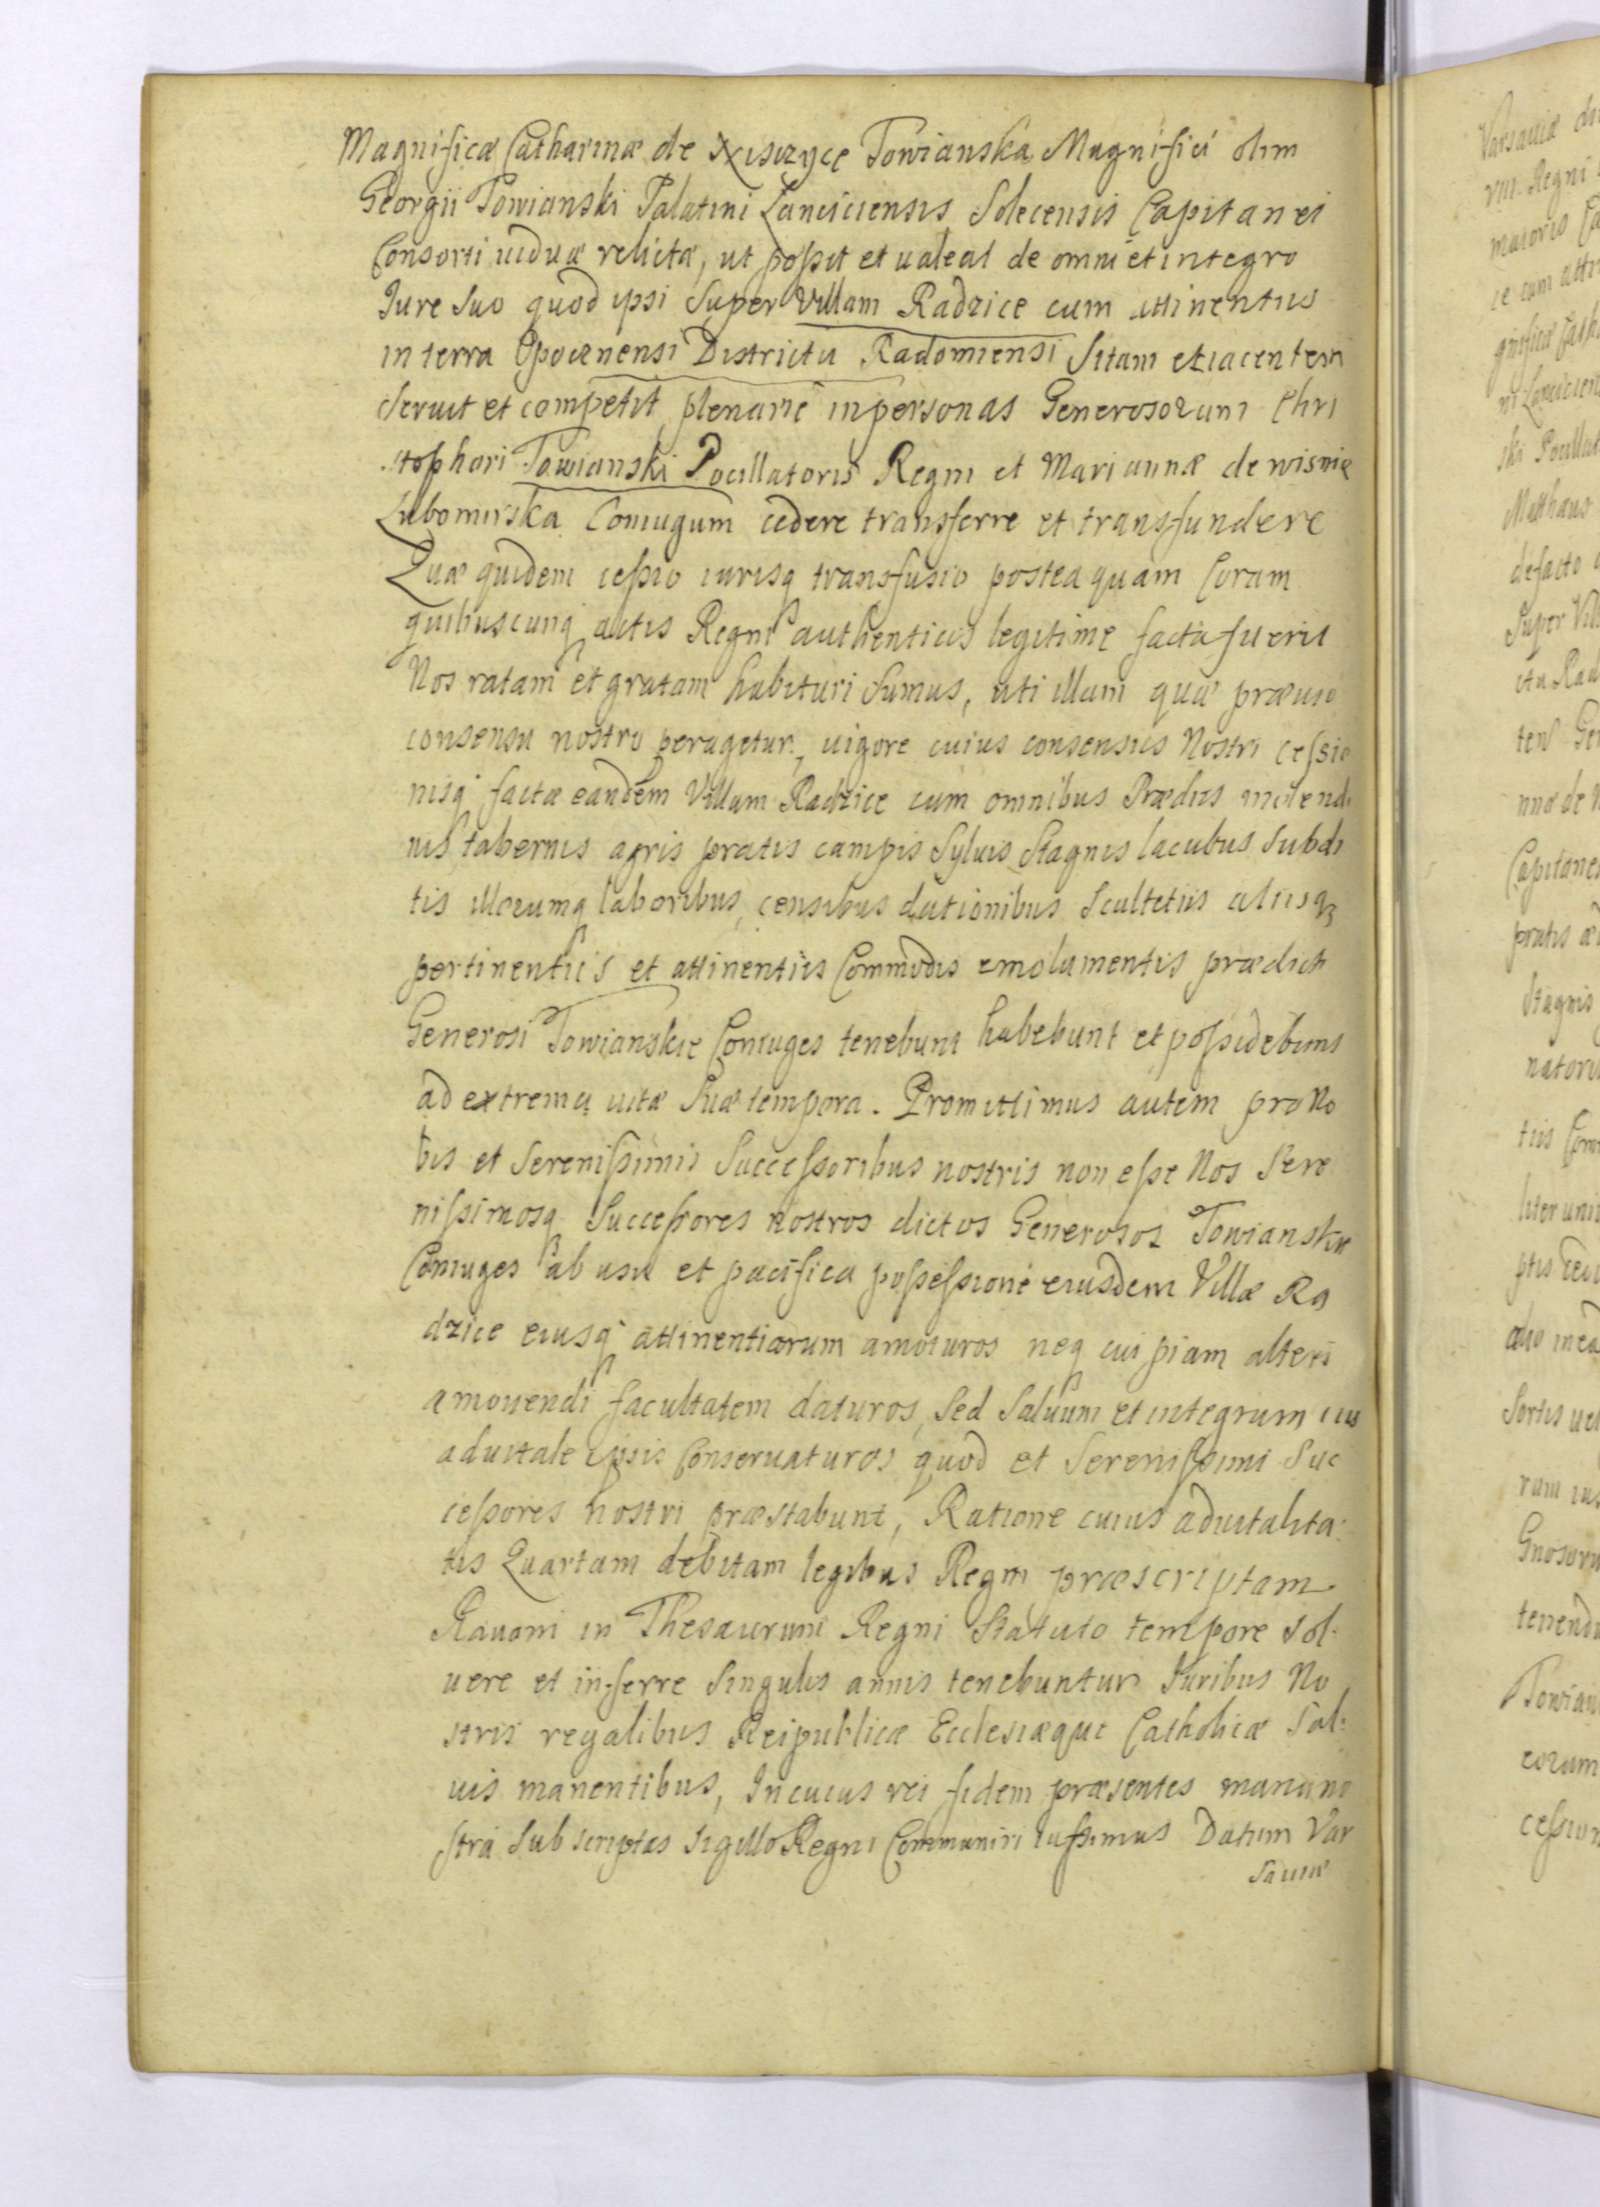 Magnificæ Catharinæ de Xiszyce Towianska Magnifici olim
Georgii Towianski Palatini Lanciciensis Solecensis Capitanei
Consorti uiduæ relictæ, ut possit et ualeat de omni et integro
Iure suo quod ipsi super Villam Radzice cum attinentiis
in terra Opocznensi Districtu Radomiensi sitam et iacentem
seruit et competit plenarie in personas Generosorum Chri
stophori Towianski Pocillatoris Regni et Mariannæ de wisnicze
Lubomirska Coniugum cedere transferre et transfundere
Quæ quidem cessio iurisq transfusio postea quam Coram
quibuscunq actis Regni authenticis legitime facta fuerit
Nos ratam et gratam habituri sumus, uti illam quæ præuio
consensu nostro peragetur, uigore cuius consensus Nostri cessio
nisq factæ eandem Villam Radzice cum omnibus Prædiis molendi
nis tabernis agris pratis campis syluis stagnis lacubus subdi
tis illorumq laboribus, censibus dationibus scultetiis aliisq
pertinentiis et attinentiis Commodis emolumentis prædicti
Generosi Towianskie Coniuges tenebunt habebunt et possidebunt
ad extrema uitæ suæ tempora. Promittimus autem pro No
bis et serenissimis successoribus nostris non esse Nos sere
nissimosq successores nostros dictos Generosos Towianskie
Coniuges ab usu et pacifica possessione eiusdem Villæ Ra
dzice eiusq attinentiarum amoturos neq cuipiam alteri
amouendi facultatem daturos, sed saluum et integrum ius
aduitale ipsis Conseruaturos, quod et serenissimi suc
cessores nostri præstabunt, Ratione cuius aduitalita:
tis Quartam debitam legibus Regni præscriptam
Rauam in Thesaurum Regni statuto tempore sol:
uere et inferre singulis annis tenebuntur Iuribus No
stris regalibus Reipublicæ Ecclesiæque Catholicæ sal:
uis manentibus, In cuius rei fidem præsentes manu no
stra subscriptas sigillo Regni Communiri iussimus Datum Var
sauiæ